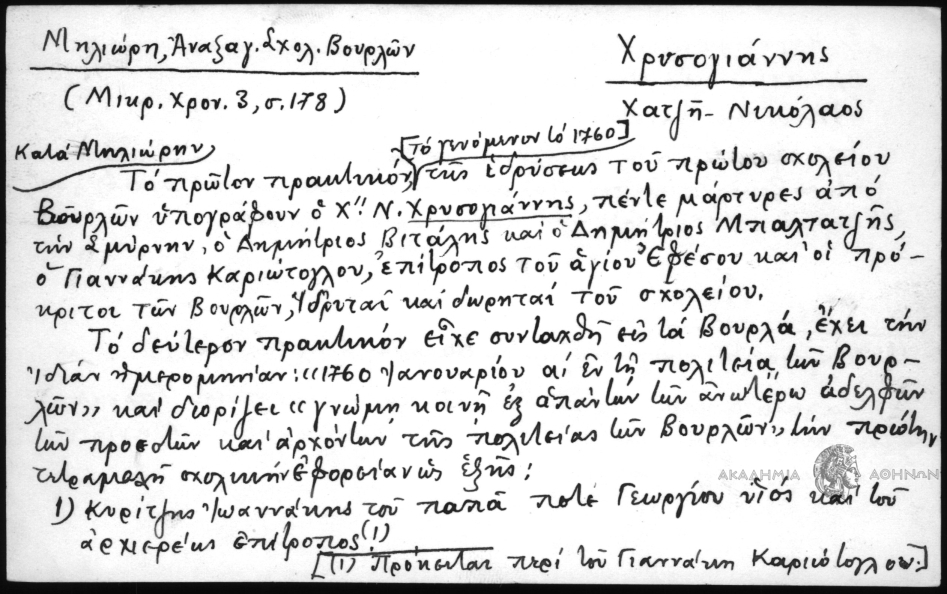 Μηλιώρη, Ἀναξαγ. Σχολ. Βουρλῶν
(Μικρ. Χρον. 3, σ. 178)
Χρυσογιάννης
Χατζῆ - Νικόλαος
Κατά Μηλιώρην
[τό γενόμενον τό 1760]
Τό πρῶτον πρακτικόν, τῆς ἱδρύσεως τοῦ πρώτου σχολείου
Βουρλῶν ὑπογράφουν ὁ Χ'' Ν. Χρυσογιάννης, πέντε μάρτυρες ἀπό
τήν Σμύρνην, ὁ Δημήτριος Βιτάλης καί ὁ Δημήτριος Μπαλτατζῆς,
ὁ Γιαννάκης Καριώτογλου, ἐπίτροπος τοῦ ἁγίου Ἐφέσου καί οἱ πρό-
κριτοι τῶν Βουρλῶν, ἱδρυταί καί δωρηταί τοῦ σχολείου.
Τό δεύτερον πρακτικόν εἶχε συνταχθῆ εἰς τά Βουρλά, ἔχει τήν
ἰδίαν ἡμερομηνίαν: «1760 Ἰανουαρίου αί ἐν τῇ πολιτείᾳ τῶν Βουρ-
λῶν» καί διορίζει «γνώμῃ κοινῇ ἐξ ἁπάντων τῶν ἀνωτέρω ἀδελφῶν
τῶν προεστῶν καί ἀρχόντων τῆς πολιτείας τῶν Βουρλῶν» τήν πρώτην
τετραμελῆ σχολικήν ἐφορείαν ὡς ἑξῆς:
1) Κυρίτζης Ἰωαννάκης τοῦ παπᾶ ποτέ Γεωργίου υἱός καί τοῦ
ἀρχιερέως ἐπίτροπος (1)
[(1) Πρόκειται περί τοῦ Γιαννάκη Καριώτογλου.]
ΑΚΑΔΗΜΙΑ ΑΘΗΝΩΝ